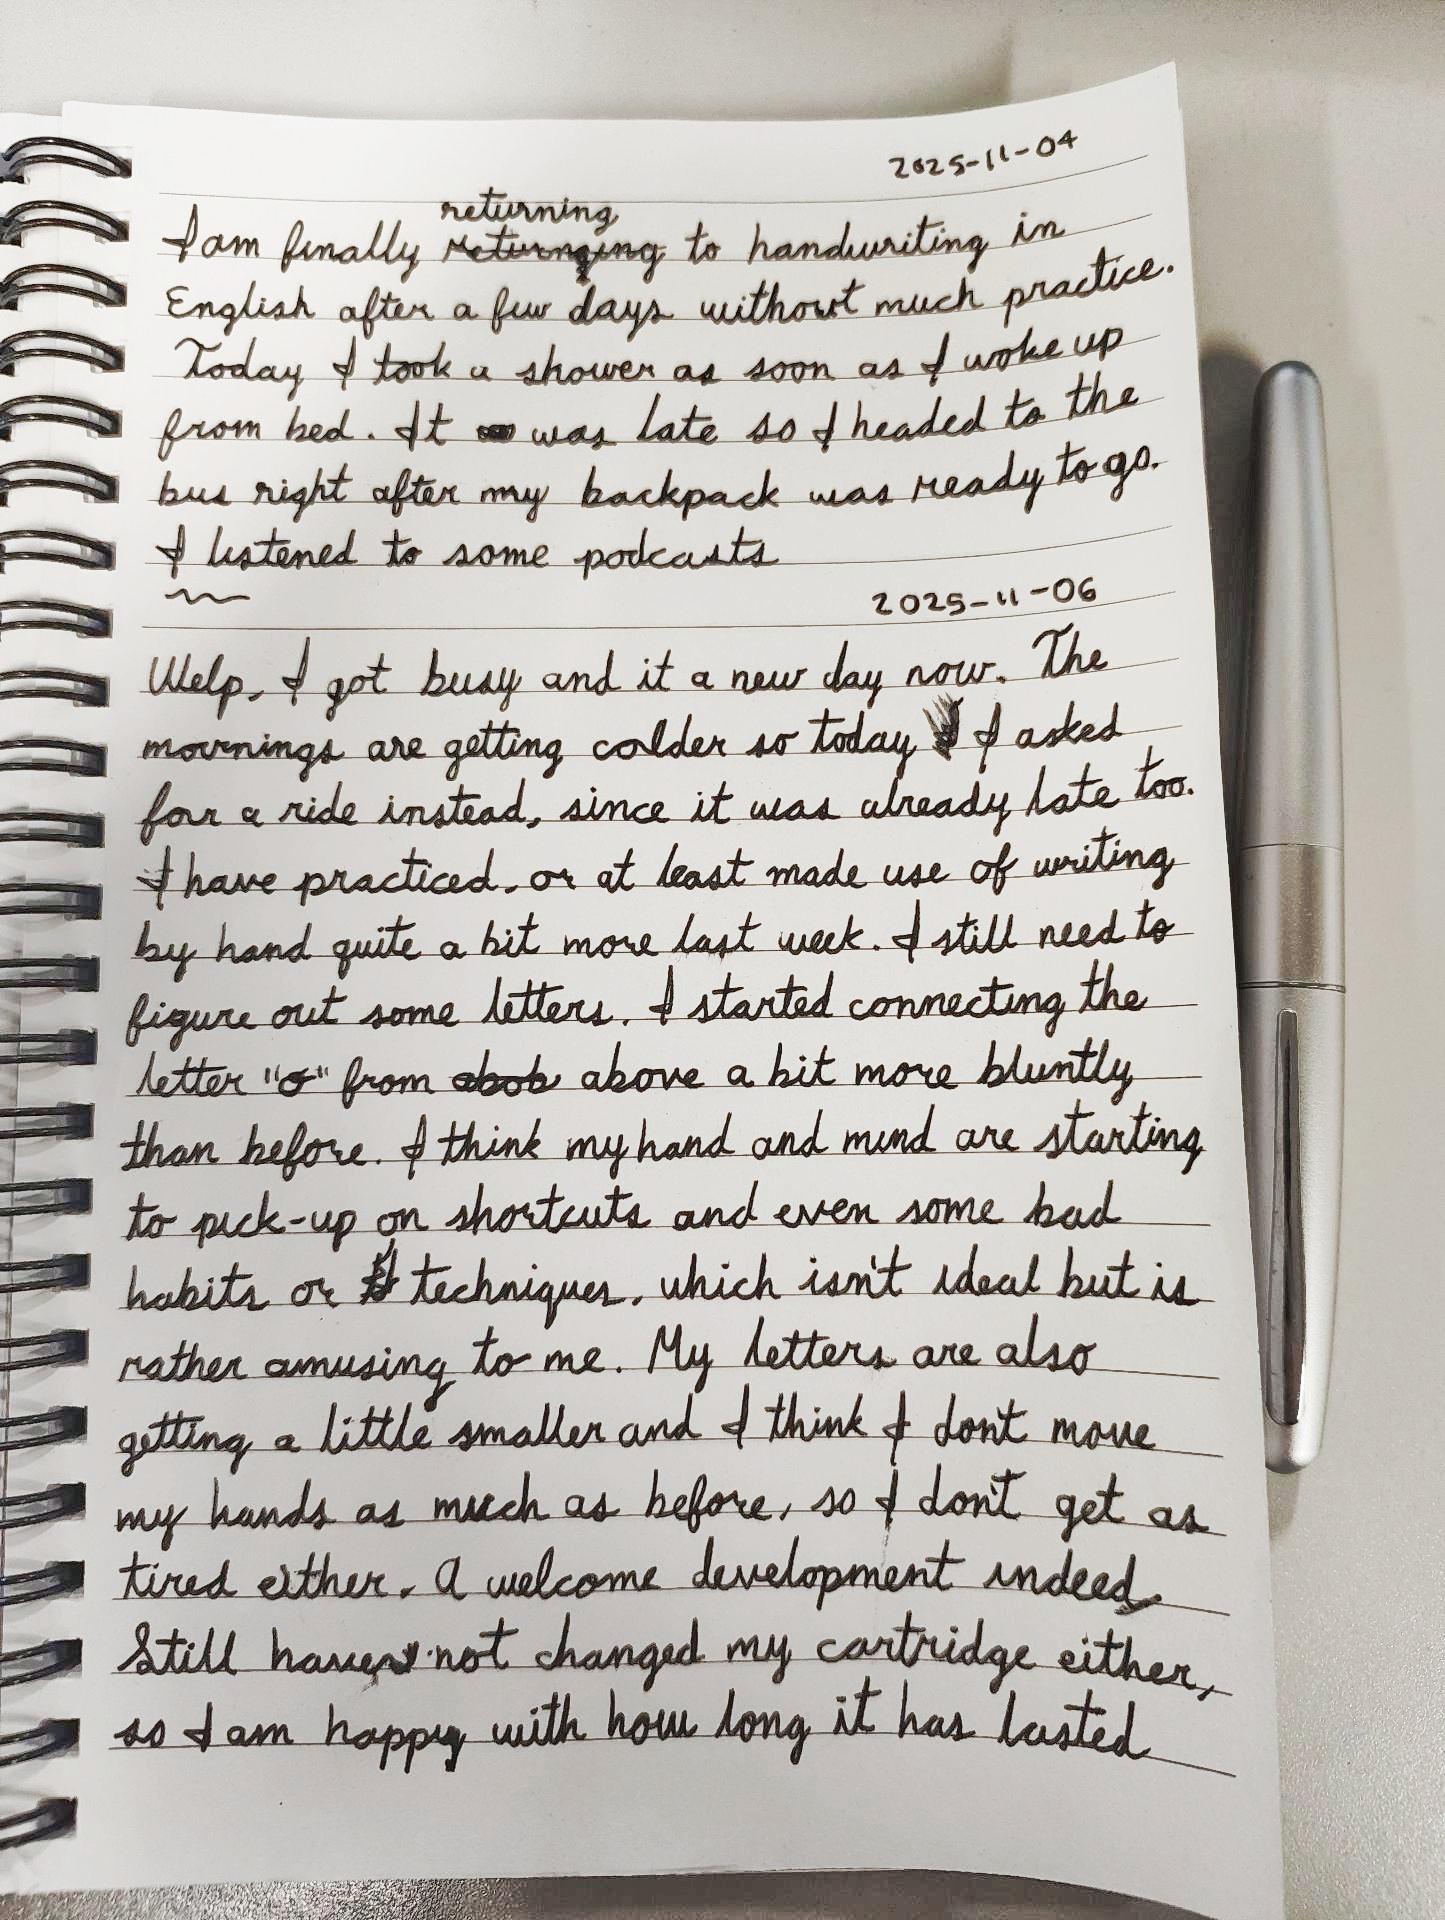 2025-11-04
returning
I am finally returnging to handwriting in
English after a few days without much practice.
Today I took a shower as soon as I woke up
from bed. It was late so I headed to the
bus right after my backpack was ready to go.
I listened to some podcasts
2025-11-06
Welp, I got busy and it a new day now. The
mornings are getting colder so today I asked
for a ride instead, since it was already late too.
I have practiced, or at least made use of writing
by hand quite a bit more last week. I still need to
figure out some letters. I started connecting the
letter "o" from abob above a bit more bluntly
than before. I think my hand and mind are starting
to pick-up on shortcuts and even some bad
habits or techniques, which isn't ideal but is
rather amusing to me. My letters are also
getting a little smaller and I think I don't move
my hands as much as before, so I don't get as
tired either. A welcome development indeed.
Still have not changed my cartridge either,
so I am happy with how long it has lasted